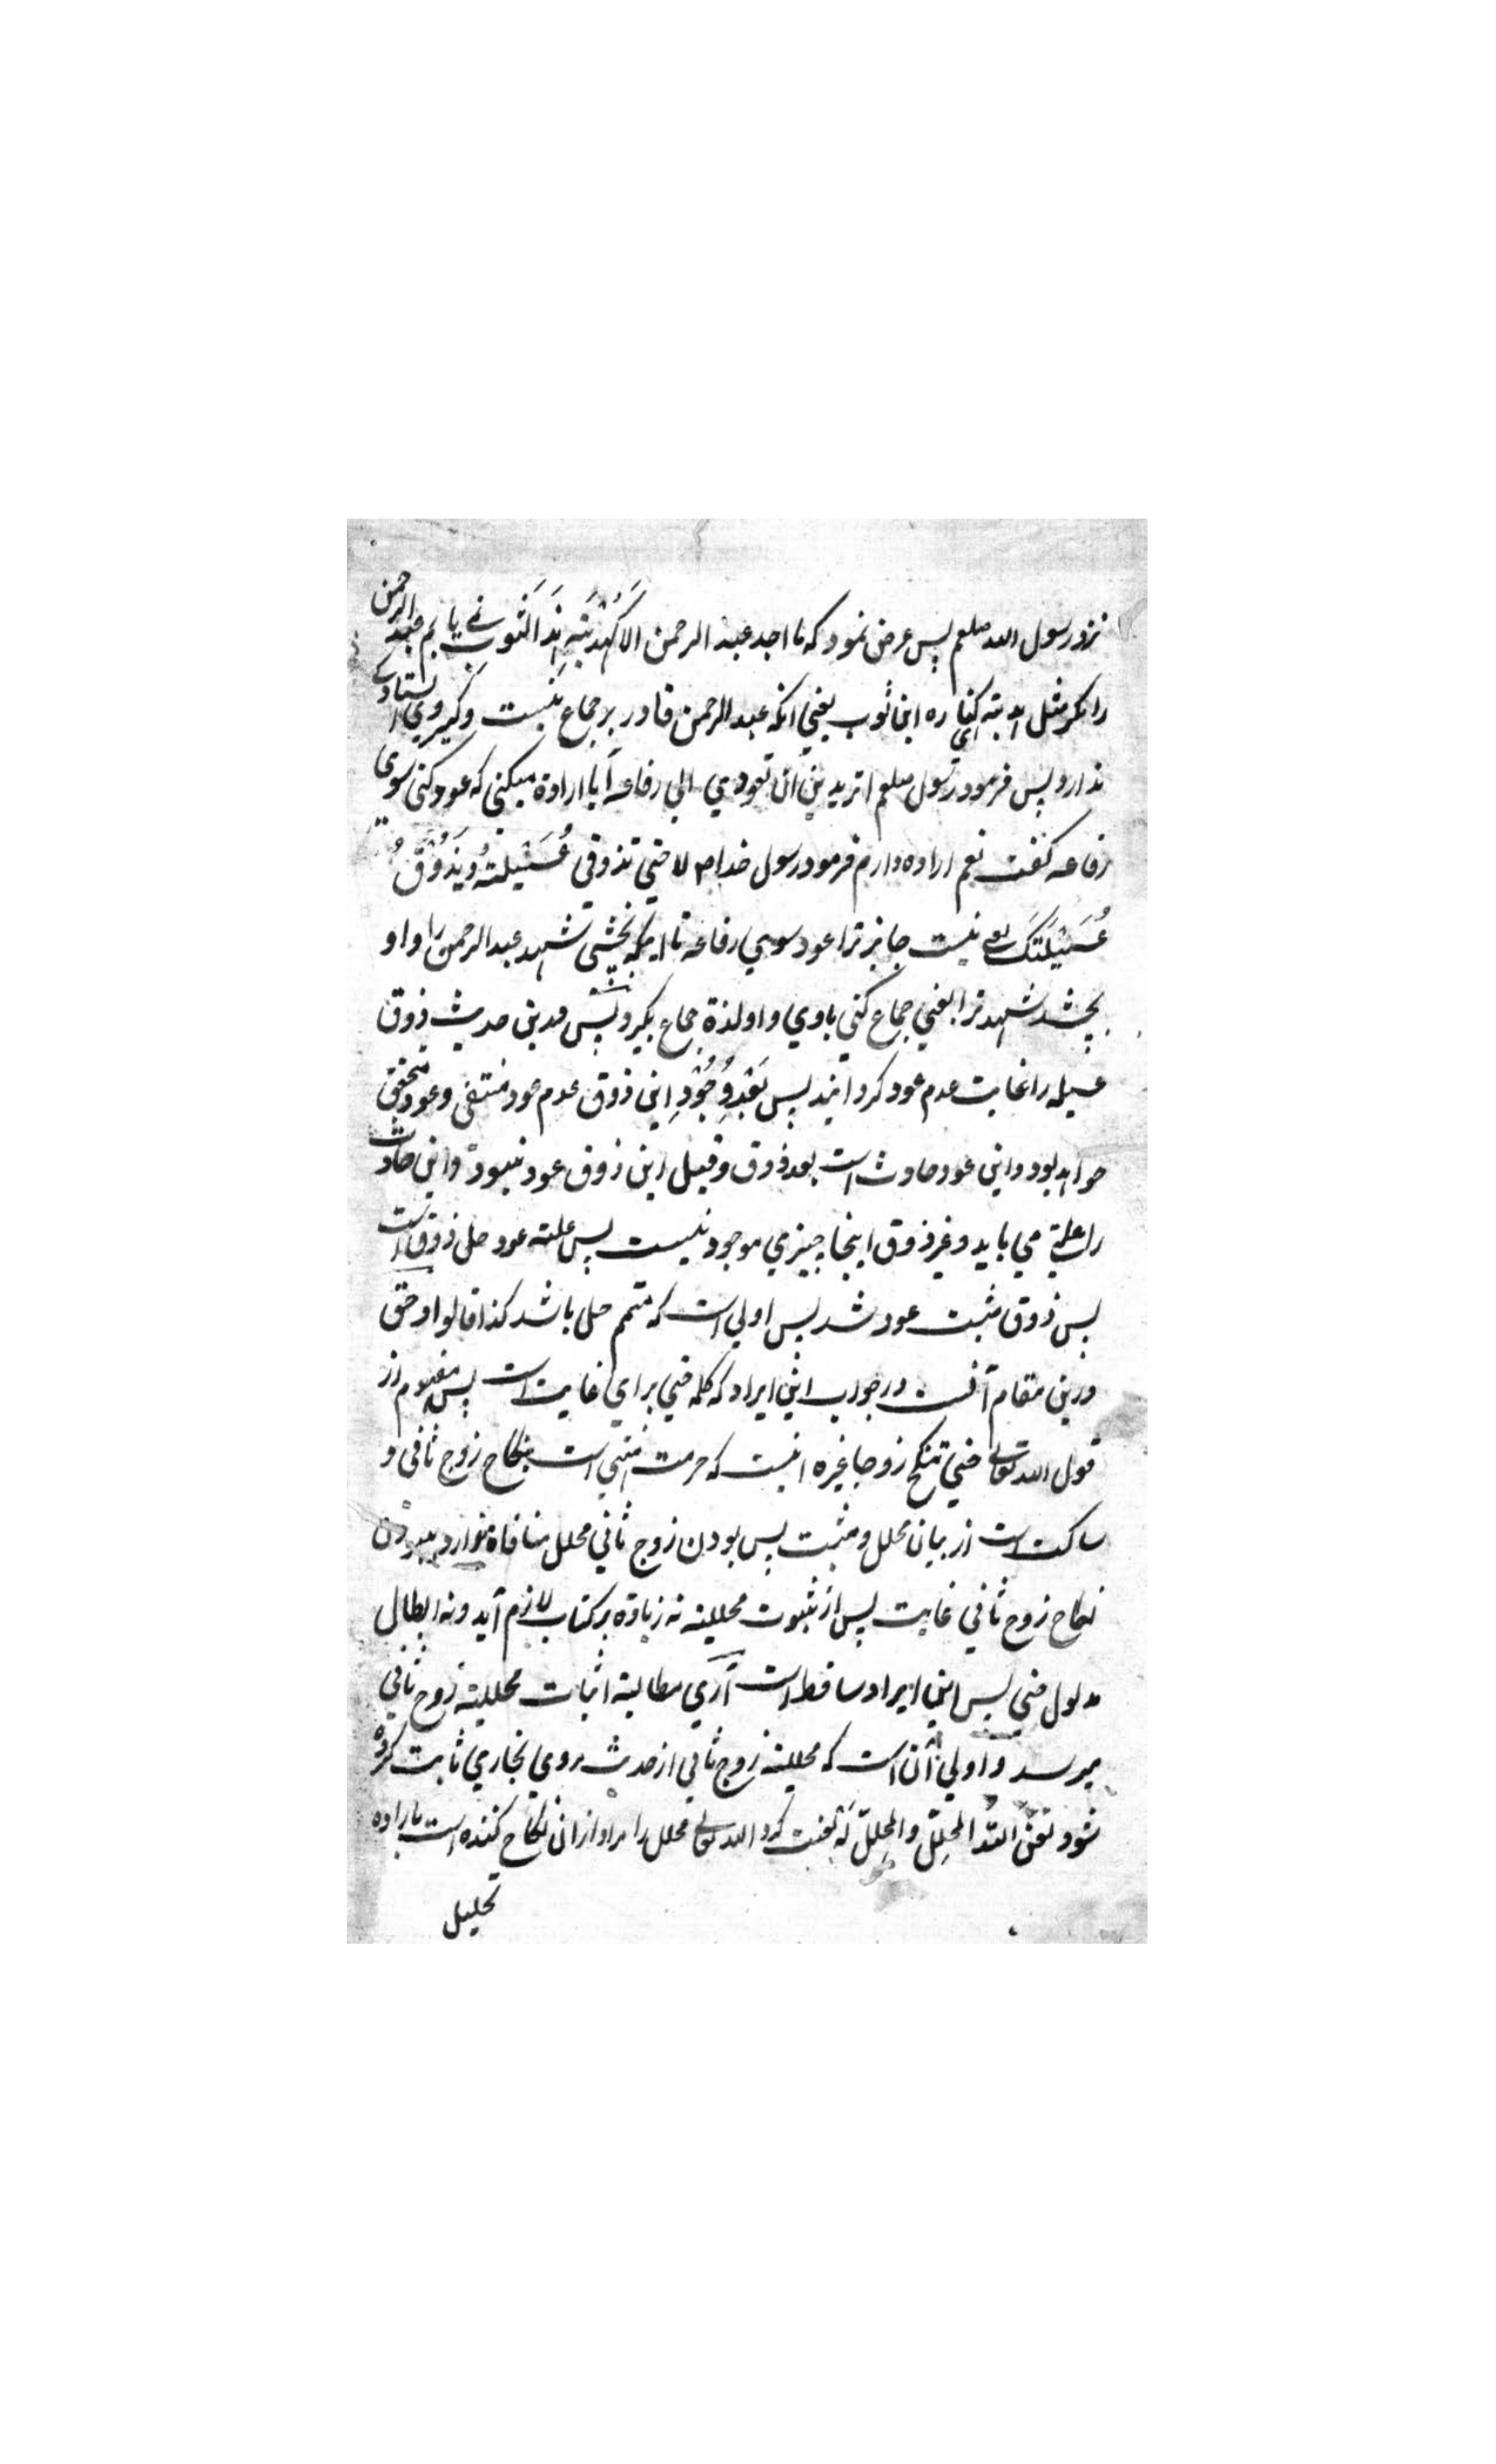 نزد رسول الله صلعم پس عرض نمود که ما اجد عبد الرحمن الا کهدبة هذا الثوب نے یابم عبد الرحمن
را مگر مثل هدبه کناره این ثوب یعنی آنکه عبد الرحمن قادر بر جماع نیست و کیر وی استادگی
ندارد پس فرمود رسول صلعم اتریدین ان تعودي الي رفاعه آیا اراده میکنی که عود کنی سوی
رفاعه گفت نعم اراده دارم فرمود رسول خدا صم لا حتي تذوقي عُسَیْلَتَهُ وَیَذُوْقُ
عُسَیْلَتَكِ یعنے نیست جایز ترا عود سوي رفاعه تا اینکه بچشی شهد عبد الرحمن را و او
بچشد شهد ترا یعني جماع کنی باوي و او لذة جماع بگیرد پس درین حدیث ذوق
عسیله را غایت عدم عود گردانید پس بَعْدِ وُجُوْدِ این ذوق عدم عود منتفی و عود متحقق
خواهد بود و این عود حادث است بعد ذوق و قبل این ذوق عود نبود و این حادث
را علتی می باید و غیر ذوق اینجا چیزي موجود نیست پس علته عود حل ذوق است
پس ذوق مثبت عود شد پس اولي است که متمم حل باشد کذا قالوا و حق
درین مقام آنست در جواب این ایراد که کلمه حتي براي غایت است پس مفهوم از
قول الله تعالی حتي تنکح زوجا غیره اینست که حرمت منتهي است بنکاح زوج ثانی و
ساکت است از بیان محلل و مثبت پس بودن زوج ثاني محلل منافاة ندارد ببودن
نکاح زوج ثاني غایت پس از ثبوت محللیته نه زیادة بر کتاب لازم آید و نه ابطال
مدلول حتي پس این ایراد ساقط است آري مطالبة اثبات محللیته زوج ثاني
میرسد و اولي آن است که محللیته زوج ثاني از حدیث مروي بخاري ثابت کرده
شود لعن الله المحلِلّ والمحلِلّ لَهٗ لعنت کرد الله تعالی محلل را مراد ازان نکاح کننده است باراده
تحلیل